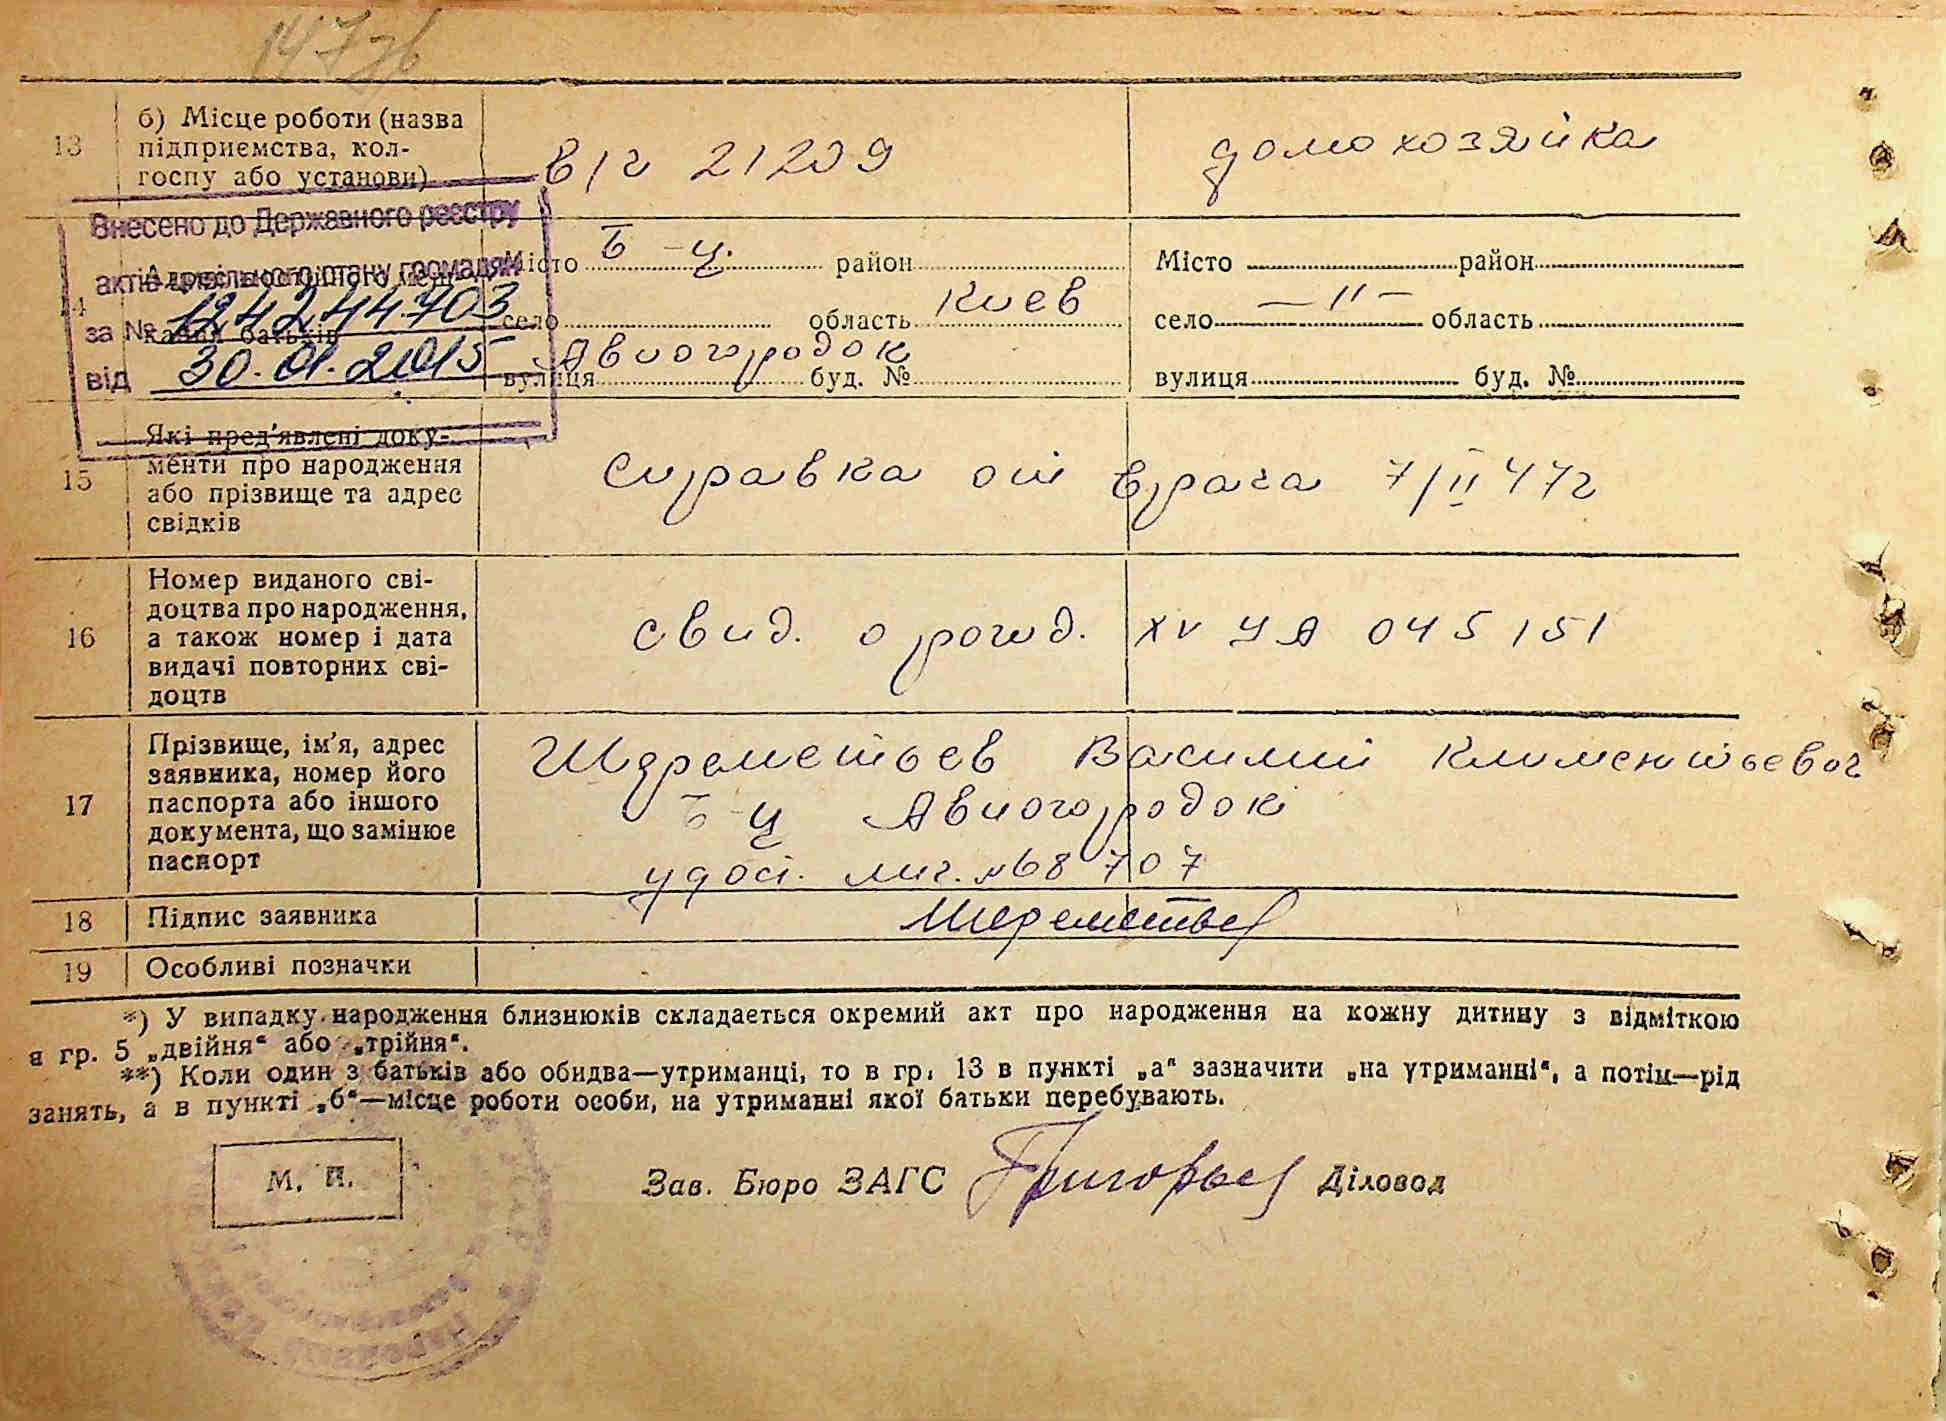 147 зв
13
б) Місце роботи (назва
підприємства, кол-
госпу або установи)
в/ч 21209
домохозяйка
Внесено до Державного реєстру
актів цивільного стану громадян
за № 124244703
від 30.01.2015
14
казня батьків
Місто Б-Ц. район
село область Киев
Авиогородок
вулиця буд. №
Місто район
село — 11 — область
вулиця буд. №
15
Які пред’явлені доку-
менти про народження
або прізвище та адрес
свідків
Справка от врача 7/II 47г
16
Номер виданого сві-
доцтва про народження,
а також номер і дата
видачі повторних сві-
доцтв
свид. о рожд. XV УА 045151
17
Прізвище, ім’я, адрес
заявника, номер його
паспорта або іншого
документа, що замінює
паспорт
Шереметьев Василий Климентьевич
Б-Ц Авиогородок
удос. лич. №68707
18
Підпис заявника
Шереметьев
19
Особливі позначки
*) У випадку народження близнюків складається окремий акт про народження на кожну дитину з відміткою
в гр. 5 „двійня“ або „трійня“.
**) Коли один з батьків або обидва—утриманці, то в гр. 13 в пункті „а“ зазначити „на утриманні“, а потім—рід
занять, а в пункті „б“—місце роботи особи, на утриманні якої батьки перебувають.
М. П.
Зав. Бюро ЗАГС Григорьев Діловод